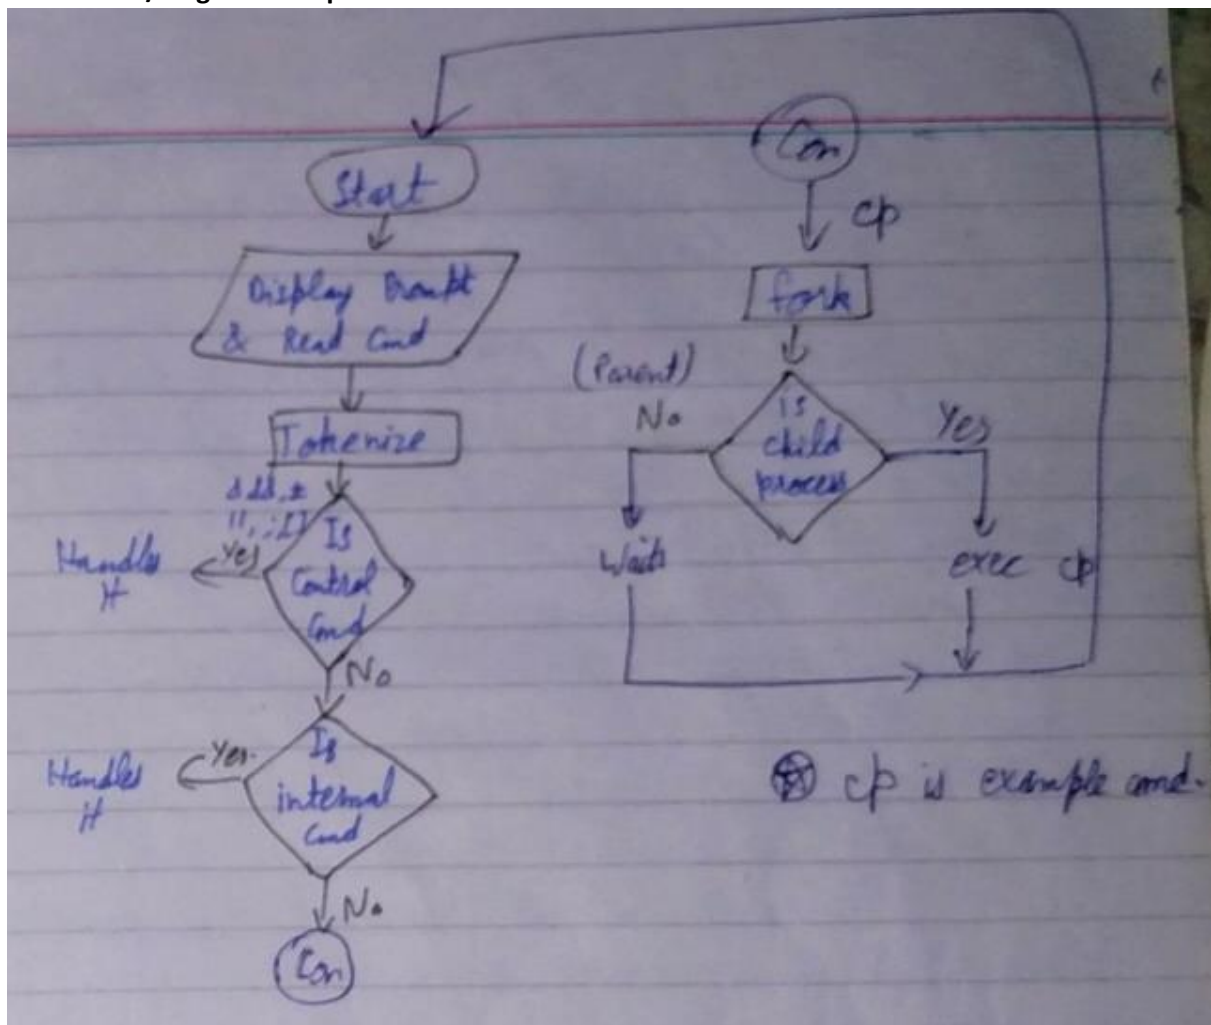 Start
Display Prompt
& Read Cmd
Tokenize
Is
Control
Cmd
Yes
Handles
It
No
Is
internal
Cmd
Yes
Handles
It
No
Con
Con
cp
fork
Is
child
process
(Parent)
No
Yes
Wait
exec cp
cp is example cmd.